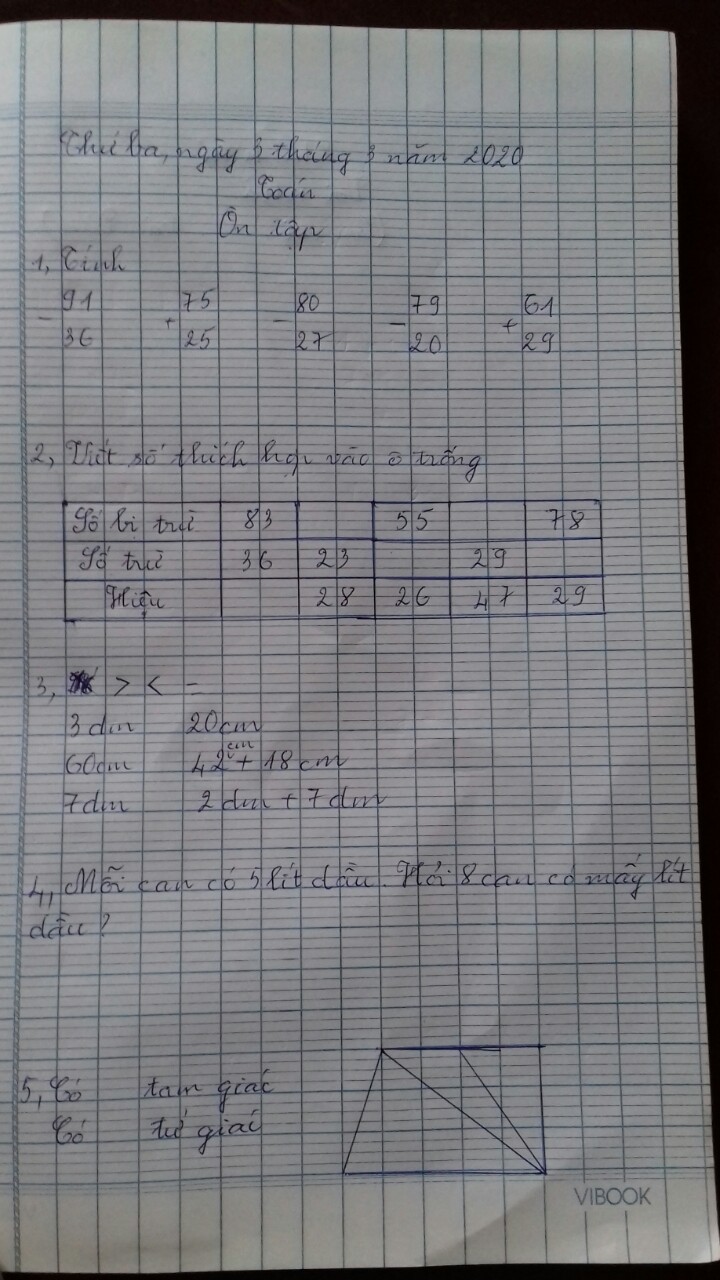 Thứ ba, ngày 3 tháng 3 năm 2020
Toán
Ôn tập
1, Tính
- 91 + 75 - 80 - 79 + 61
36 25 27 20 29
2, Viết số thích hợp vào ô trống
Số bị trừ 83 55 78
Số trừ 36 23 29
Hiệu 28 26 47 29
3, > < =
3 dm 20 cm
60cm 42cm + 18 cm
7dm 2 dm + 7 dm
4, Mỗi can có 5 lít dầu. Hỏi 8 can có mấy lít
dầu?
5, Có tam giác
Có tứ giác
VIBOOK